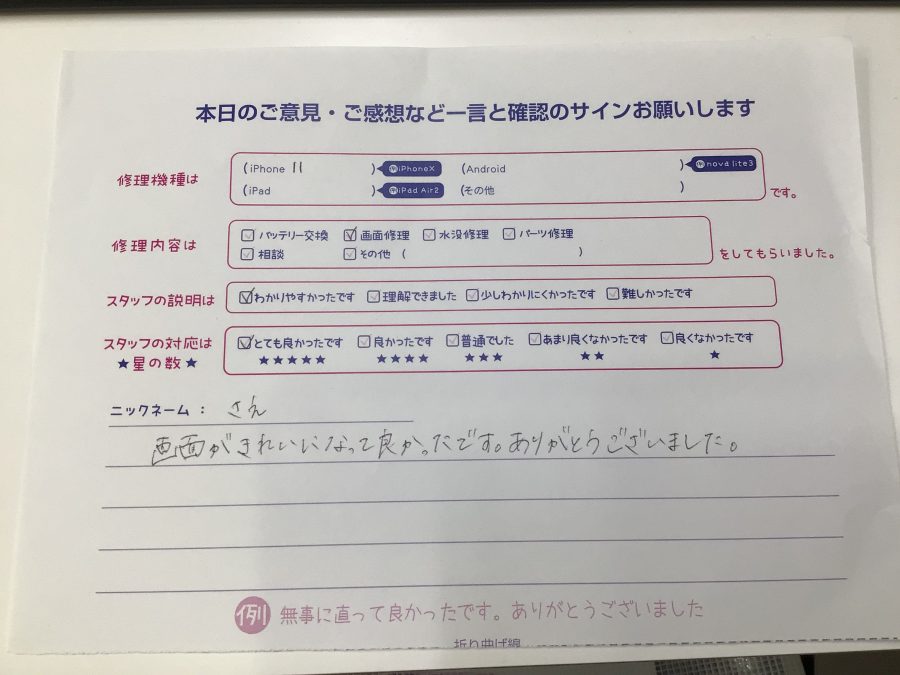 本日のご意見・ご感想など一言と確認のサインお願いします
修理機種は (iPhone 11 ) 例iPhoneX (Android ) 例nova lite3
(iPad ) 例iPad Air2 (その他 ) です。
修理内容は バッテリー交換 画面修理 水没修理 パーツ修理
相談 その他 ( ) をしてもらいました。
スタッフの説明は わかりやすかったです 理解できました 少しわかりにくかったです 難しかったです
スタッフの対応は とても良かったです 良かったです 普通でした あまり良くなかったです 良くなかったです
★星の数★ ★★★★★ ★★★★ ★★★ ★★ ★
ニックネーム: さえ
画面がきれいになって良かったです。ありがとうございました。
例 無事に直って良かったです。ありがとうございました
折り曲げ線